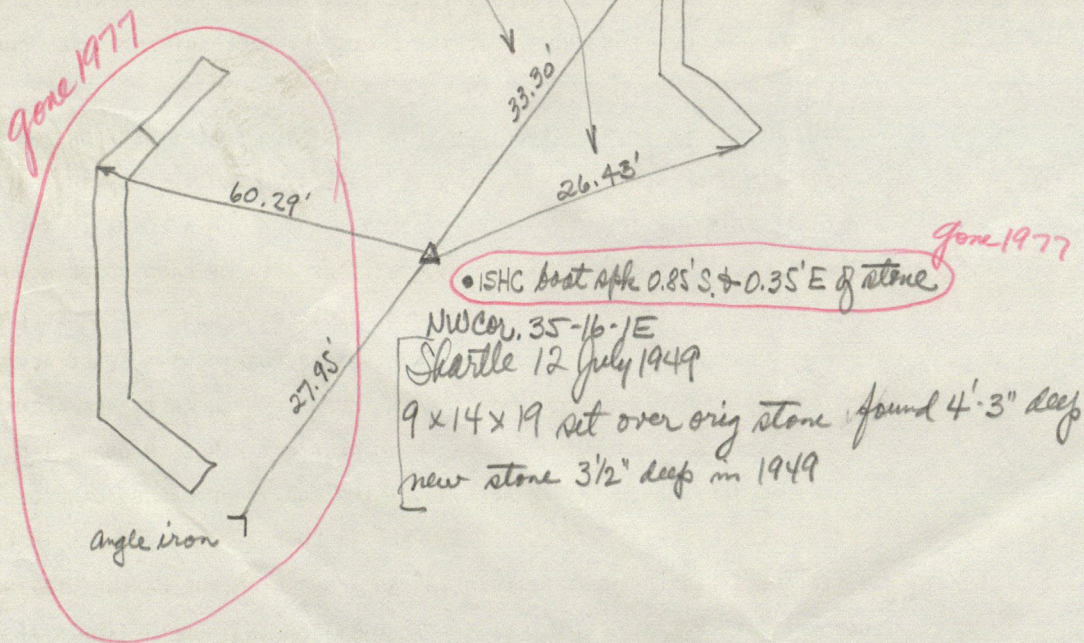 gone 1977
33.30'
26.43'
60.29'
gone 1977
ISHC boat spk 0.85' S. & 0.35' E of stone
NW Cor. 35-16-1E
Shartle 12 July 1949
27.95'
9 x 14 x 19 set over orig stone found 4'-3" deep
new stone 3 1/2" deep in 1949
angle iron